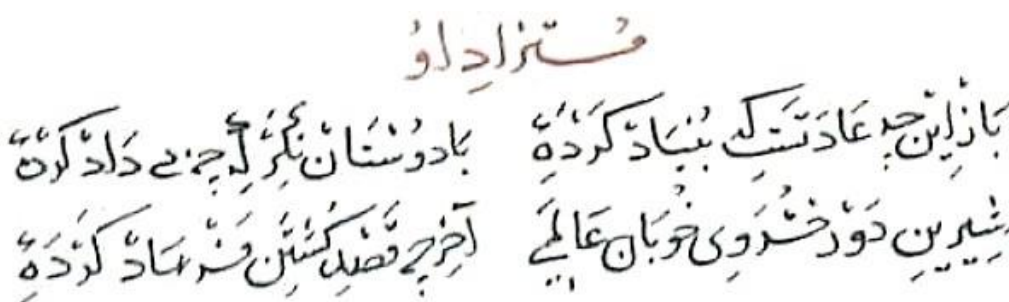 مستزاد او
باز این چه عادتست که بنیاد کرده با دوستان نگر که چه بیداد کرده
شیرین دور خسروی خوبان عالمی آخر چه قصد کشتن فرهاد کرده